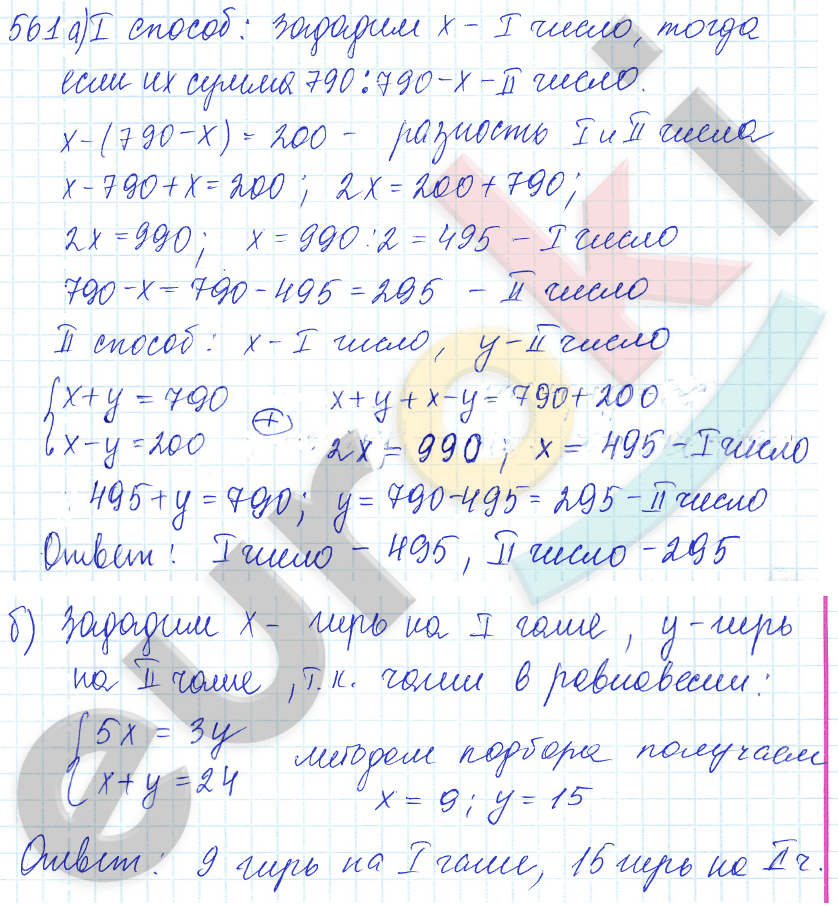 561 а) I способ: зададим x - I число, тогда
если их сумма 790: 790 - x - II число.
x - (790 - x) = 200 - разность I и II числа
x - 790 + x = 200; 2x = 200 + 790;
2x = 990; x = 990 : 2 = 495 - I число
790 - x = 790 - 495 = 295 - II число
II способ: x - I число, y - II число
x + y = 790 ⊕ x + y + x - y = 790 + 200
x - y = 200 2x = 990; x = 495 - I число
495 + y = 790; y = 790 - 495 = 295 - II число
Ответ: I число - 495, II число - 295
б) Зададим x - гирь на I чаше, y - гирь
на II чаше, т.к. чаши в равновесии:
5x = 3y
x + y = 24 методом подбора получаем
x = 9; y = 15
Ответ: 9 гирь на I чаше, 15 гирь на II ч.
euroki